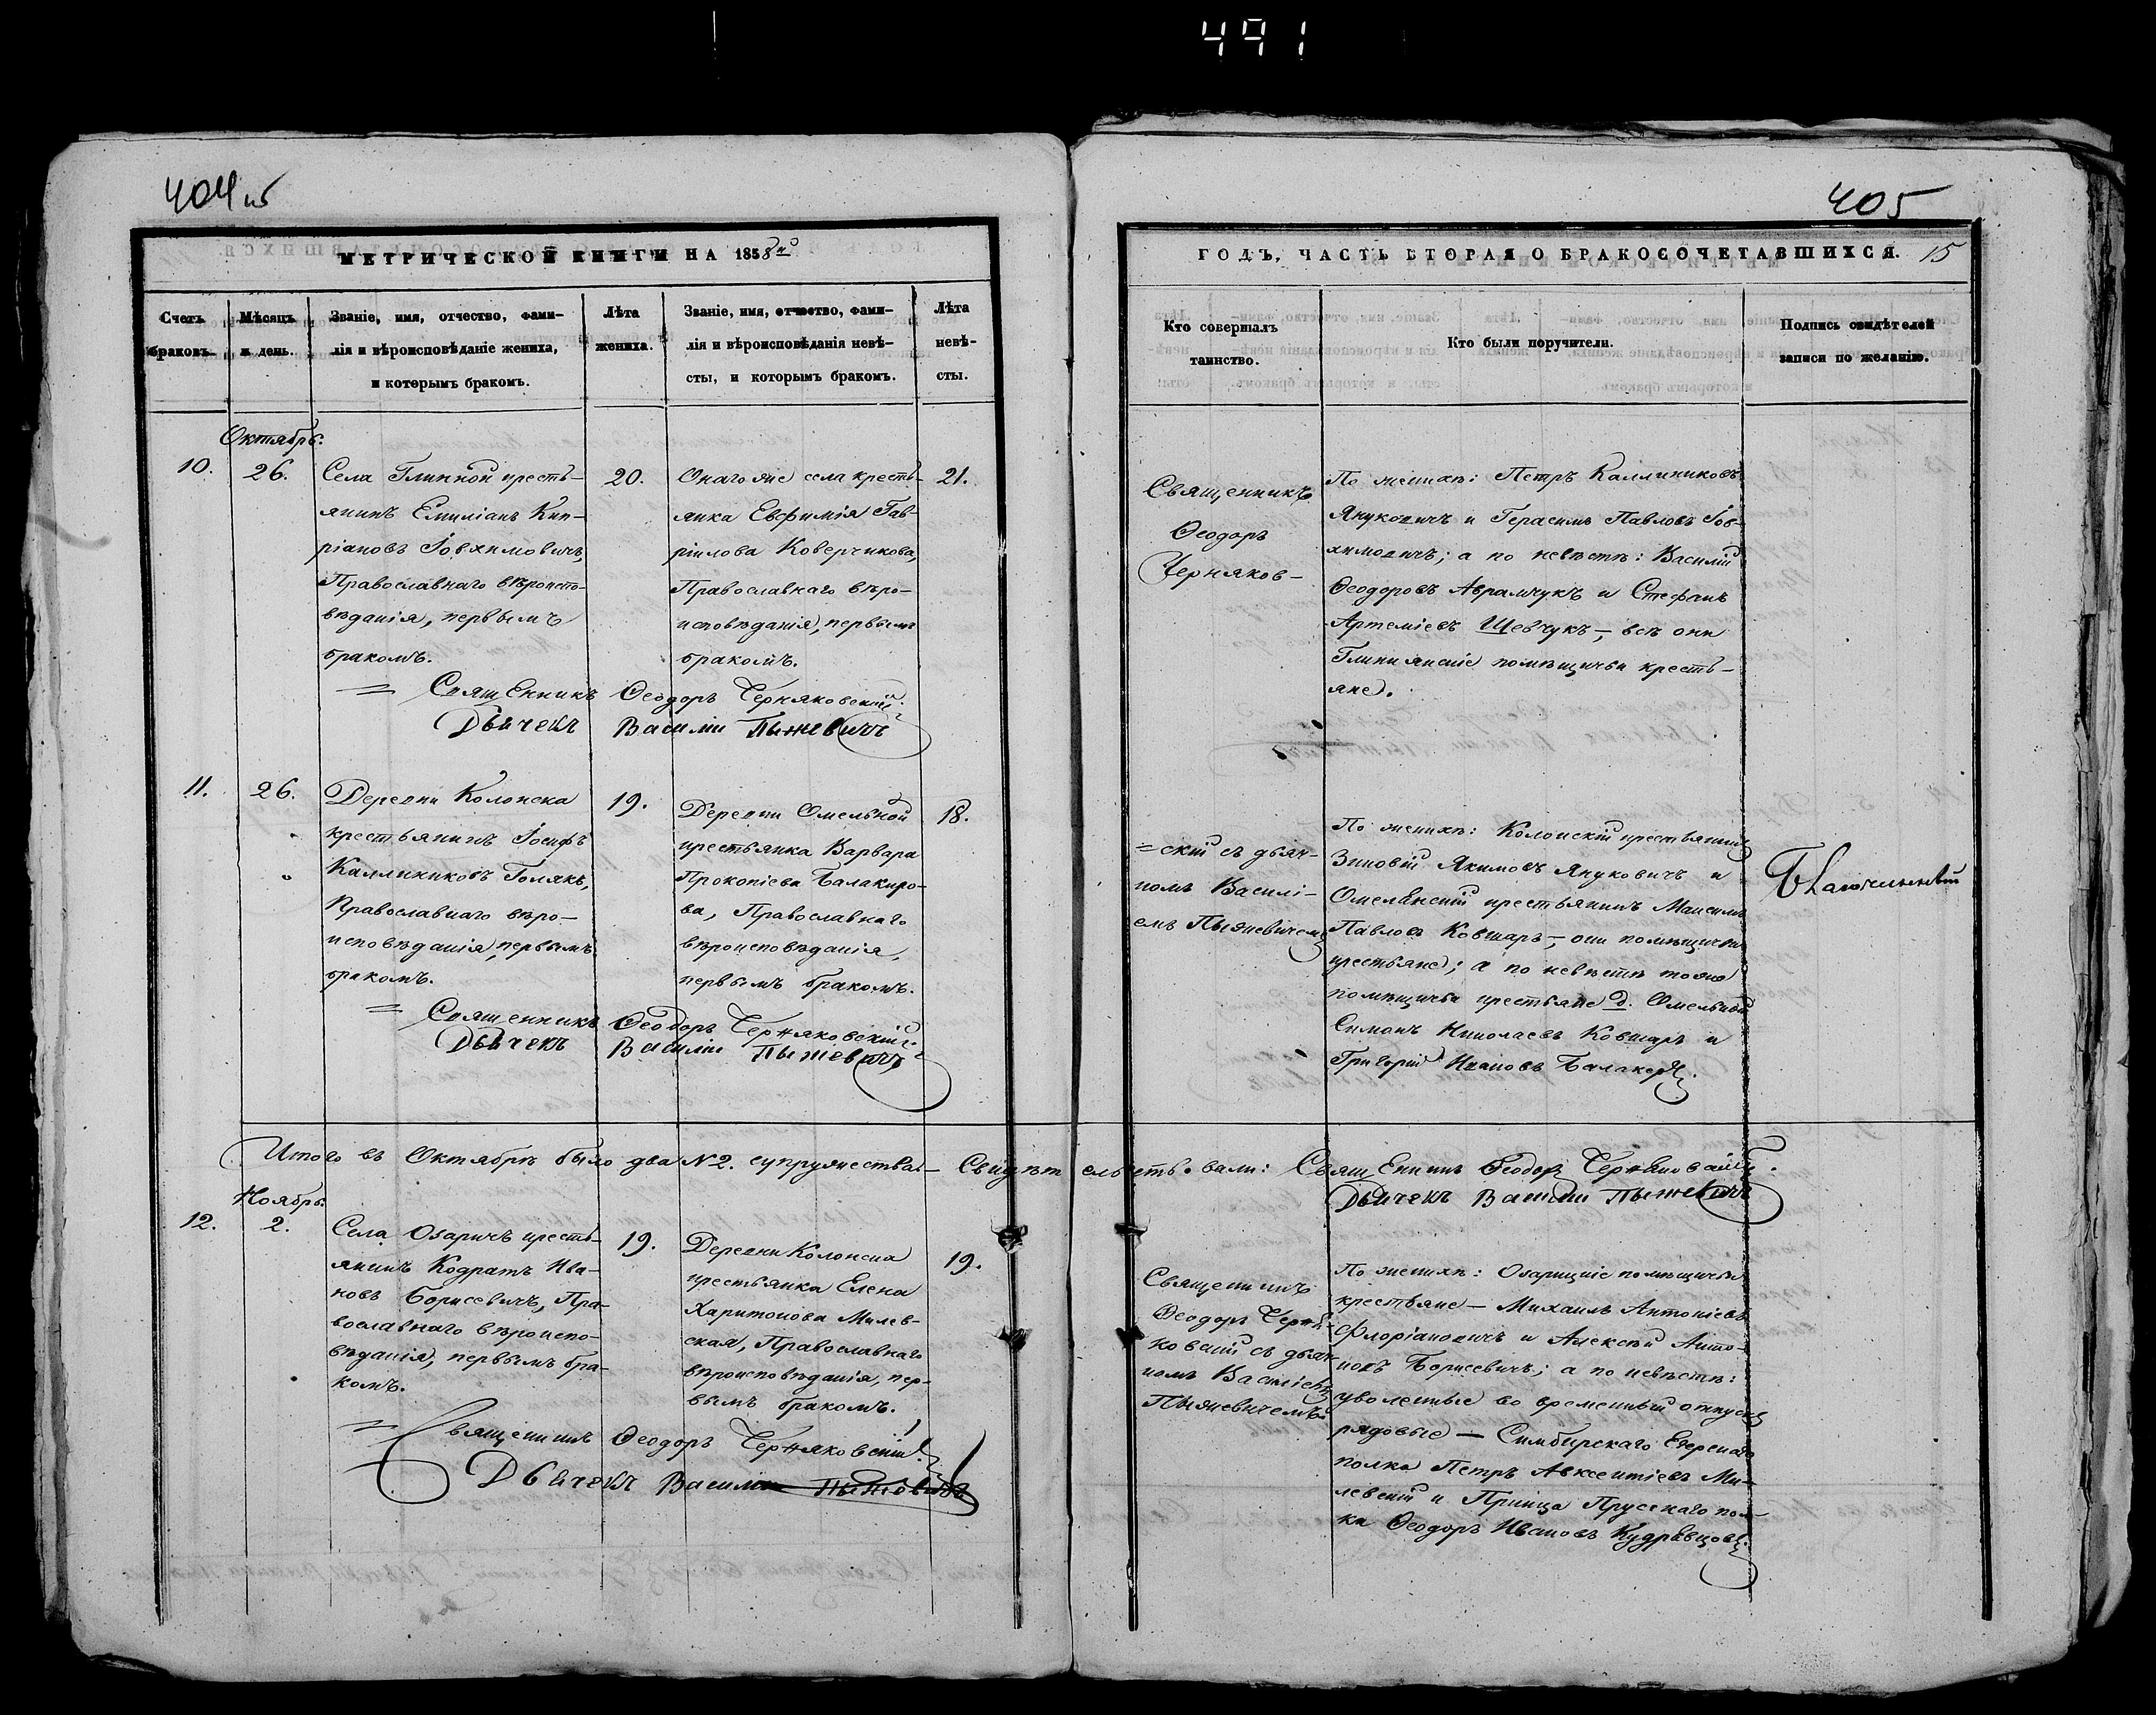 491
404 об
МЕТРИЧЕСКОЙ КНИГИ НА 1858й
Счетъ браковъ.
Мѣсяцъ и день.
Званіе, имя, отчество, фами-
лія и вѣроисповѣданіе жениха,
и которымъ бракомъ.
Лѣта жениха.
Званіе, имя, отчество, фами-
лія и вѣроисповѣданія невѣ-
сты, и которымъ бракомъ.
Лѣта невѣ-
сты.
Октябрь.
10.
26.
Села Глинной кресть-
янинъ Емиліанъ Кип-
ріановъ Іовхимовичъ,
Православнаго вѣроиспо-
вѣданія, первымъ
бракомъ.
20.
Онаго же села кресть-
янка Евфимія Гав-
ріилова Коверчикова,
Православнаго вѣро-
исповѣданія, первымъ
бракомъ.
21.
Священникъ Ѳеодоръ Черняковскій.
Дьячекъ Василій Пыжевичъ
11.
26.
Деревни Колонска
крестьянинъ Іосифъ
Каллиниковъ Голякъ,
Православнаго вѣро-
исповѣданія, первымъ
бракомъ.
19.
Деревни Омельной
крестьянка Варвара
Прокопіева Балакиро-
ва, Православнаго
вѣроисповѣданія,
первымъ бракомъ.
18.
Священникъ Ѳеодоръ Черняковскій.
Дьячекъ Василій Пыжевичъ
Итого въ Октябрѣ было два № 2. супружества.— Свидѣтельствовали: Священникъ Ѳеодоръ Черняковскій.
Дьячекъ Василій Пыжевичъ
Ноябрь.
12.
2.
Села Озаричъ кресть-
янинъ Кодратъ Ива-
новъ Борисевичъ, Пра-
вославнаго вѣроиспо-
вѣданія, первымъ бра-
комъ.
19.
Деревни Колонска
крестьянка Елена
Харитонова Милев-
ская, Православнаго
вѣроисповѣданія, пер-
вымъ бракомъ.
19.
Священникъ Ѳеодоръ Черняковскій.
Дьячекъ Василій Пыжевичъ
405
ГОДЪ, ЧАСТЬ ВТОРАЯ О БРАКОСОЧЕТАВШИХСЯ. 15
Кто совершалъ
таинство.
Кто были поручители.
Подпись свидѣтелей
записи по желанію.
Священникъ
Ѳеодоръ
Черняков-
По женихѣ: Петръ Каллиниковъ
Януковичъ и Герасимъ Павловъ Іов-
химовичъ; а по невѣстѣ: Василій
Ѳеодоровъ Аврамчукъ и Стефанъ
Артеміевъ Шевчукъ,— всѣ они
Глинянскіе помѣщичьи кресть-
яне.
=скій съ дьяч-
комъ Василі-
емъ Пыжевичемъ
По женихѣ: Колонскій крестьянинъ
Зиновій Якимовъ Януковичъ и
Омелянскій крестьянинъ Максимъ
Павловъ Ковшаръ,— они помѣщичьи
крестьяне; а по невѣстѣ тоже
помѣщичьи крестьяне д. Омельной
Симонъ Николаевъ Ковшаръ и
Григорій Ивановъ Балакиръ.
Священникъ
Ѳеодоръ Черня-
ковскій съ дьяч-
комъ Василіемъ
Пыжевичемъ
По женихѣ: Озарицкіе помѣщичьи
крестьяне— Михаилъ Антоніевъ
Флоріановичъ и Алексѣй Анто-
новъ Борисевичъ; а по невѣстѣ:
уволенные во временный отпускъ
рядовые — Симбирскаго Егерскаго
полка Петръ Авксентіевъ Ми-
левскій и Принца Прусскаго пол-
ка Ѳеодоръ Ивановъ Кудрявцовъ.